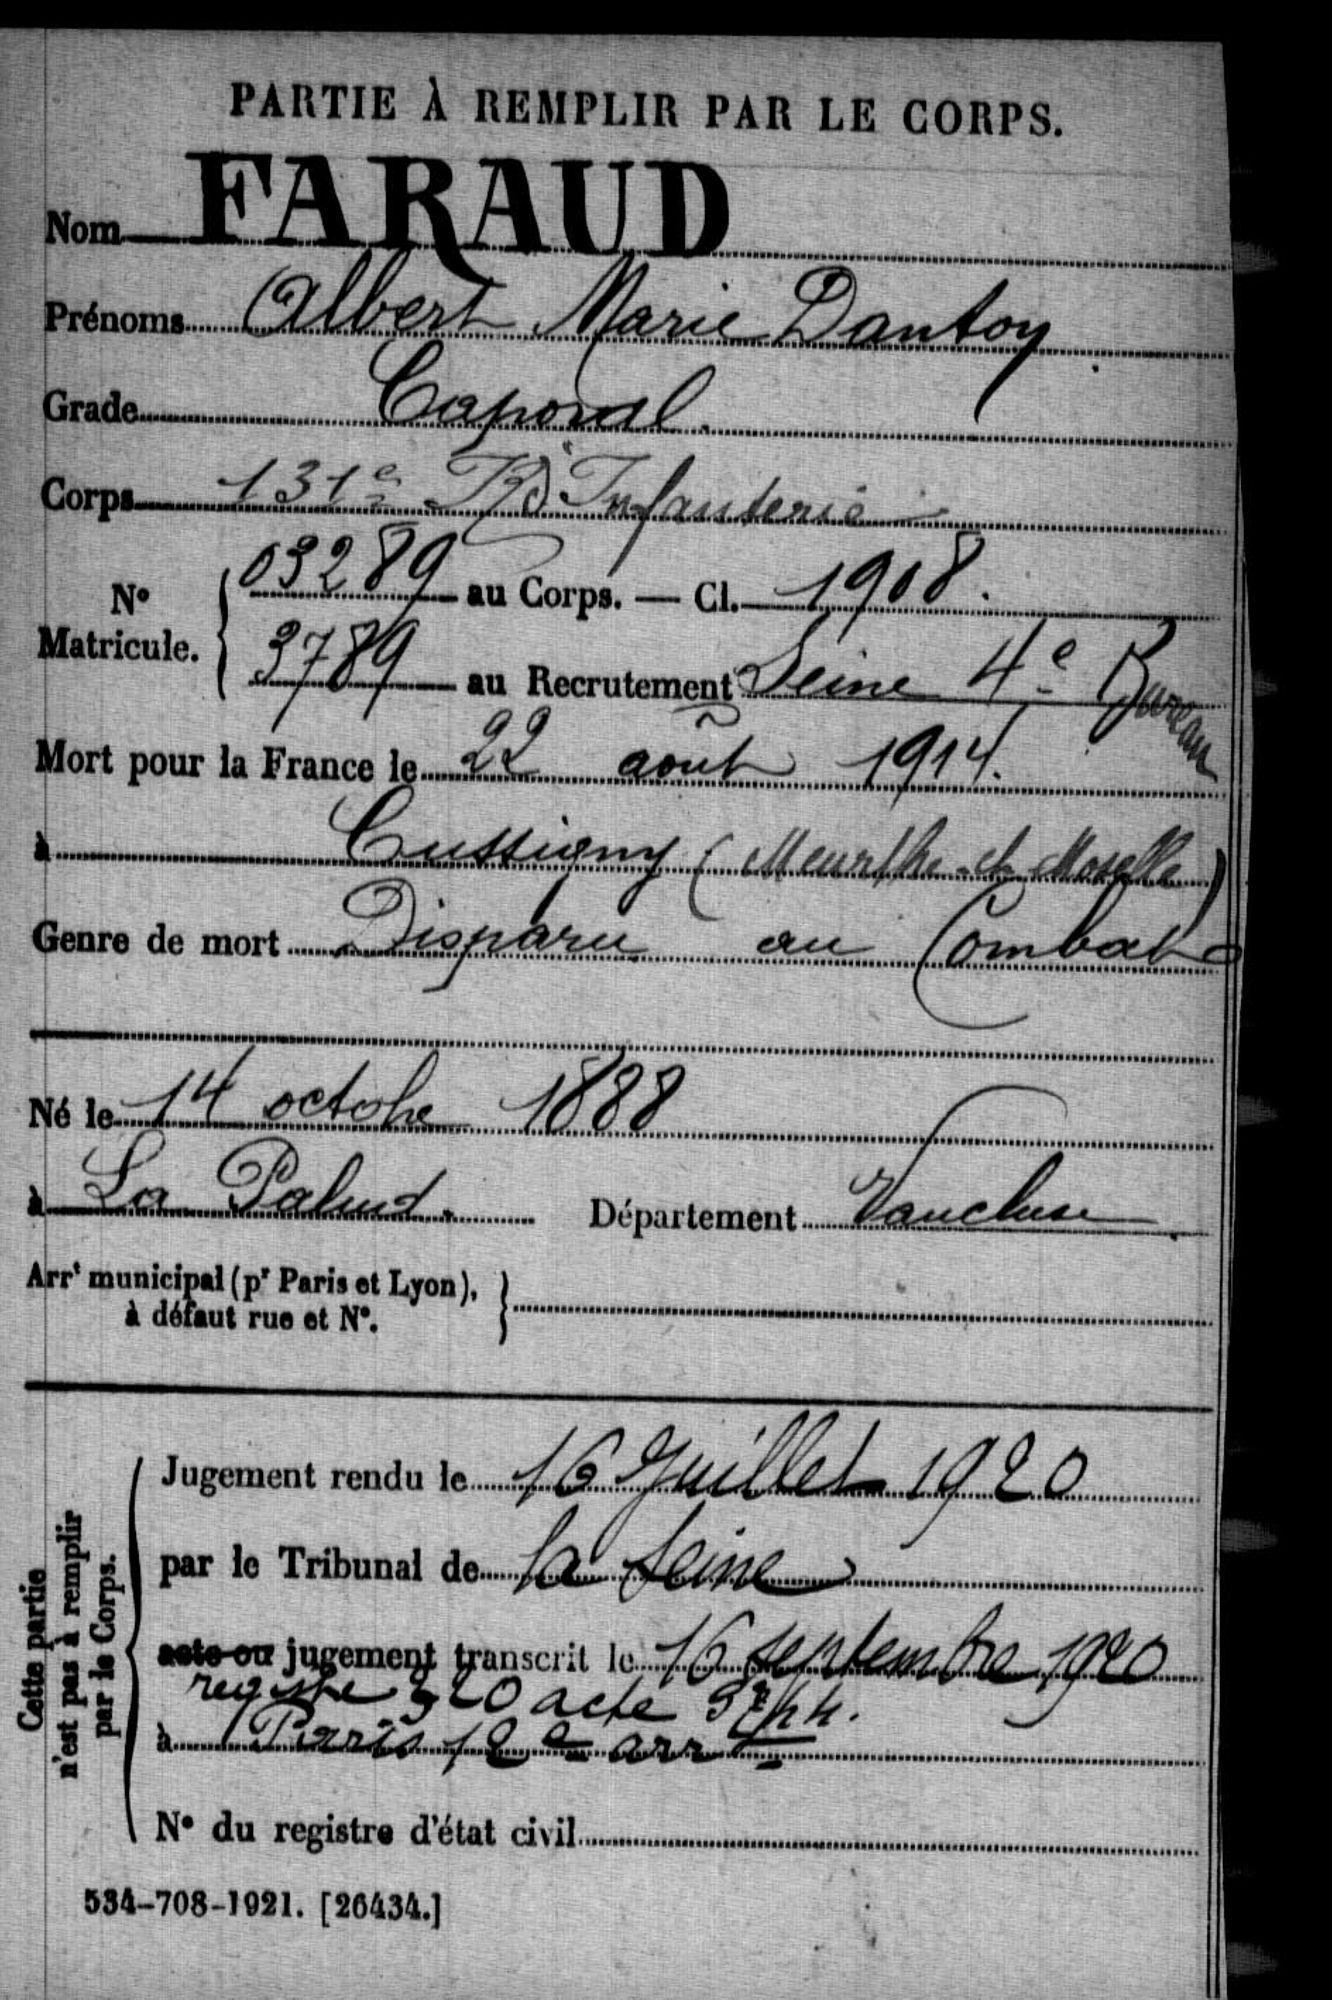 PARTIE À REMPLIR PAR LE CORPS.
Nom FARAUD
Prénoms Albert Marie Dantoy
Grade Caporal.
Corps 131e R. d'Infanterie
No Matricule. { 03289 au Corps. — Cl. 1908.
3789 au Recrutement Seine 4e Bureau
Mort pour la France le 22 août 1914.
à Cussigny (Meurthe-et-Moselle)
Genre de mort Disparu au Combat
Né le 14 octobre 1888
à La Palud. Département Vaucluse
Arrt municipal (pr Paris et Lyon),
à défaut rue et No. }
Cette partie
n'est pas à remplir
par le Corps.
Jugement rendu le 16 Juillet 1920
par le Tribunal de la Seine
acte ou jugement transcrit le 16 septembre 1920
registre 320 acte
à Paris 12e arrt
No du registre d'état civil
534-708-1921. [26434.]